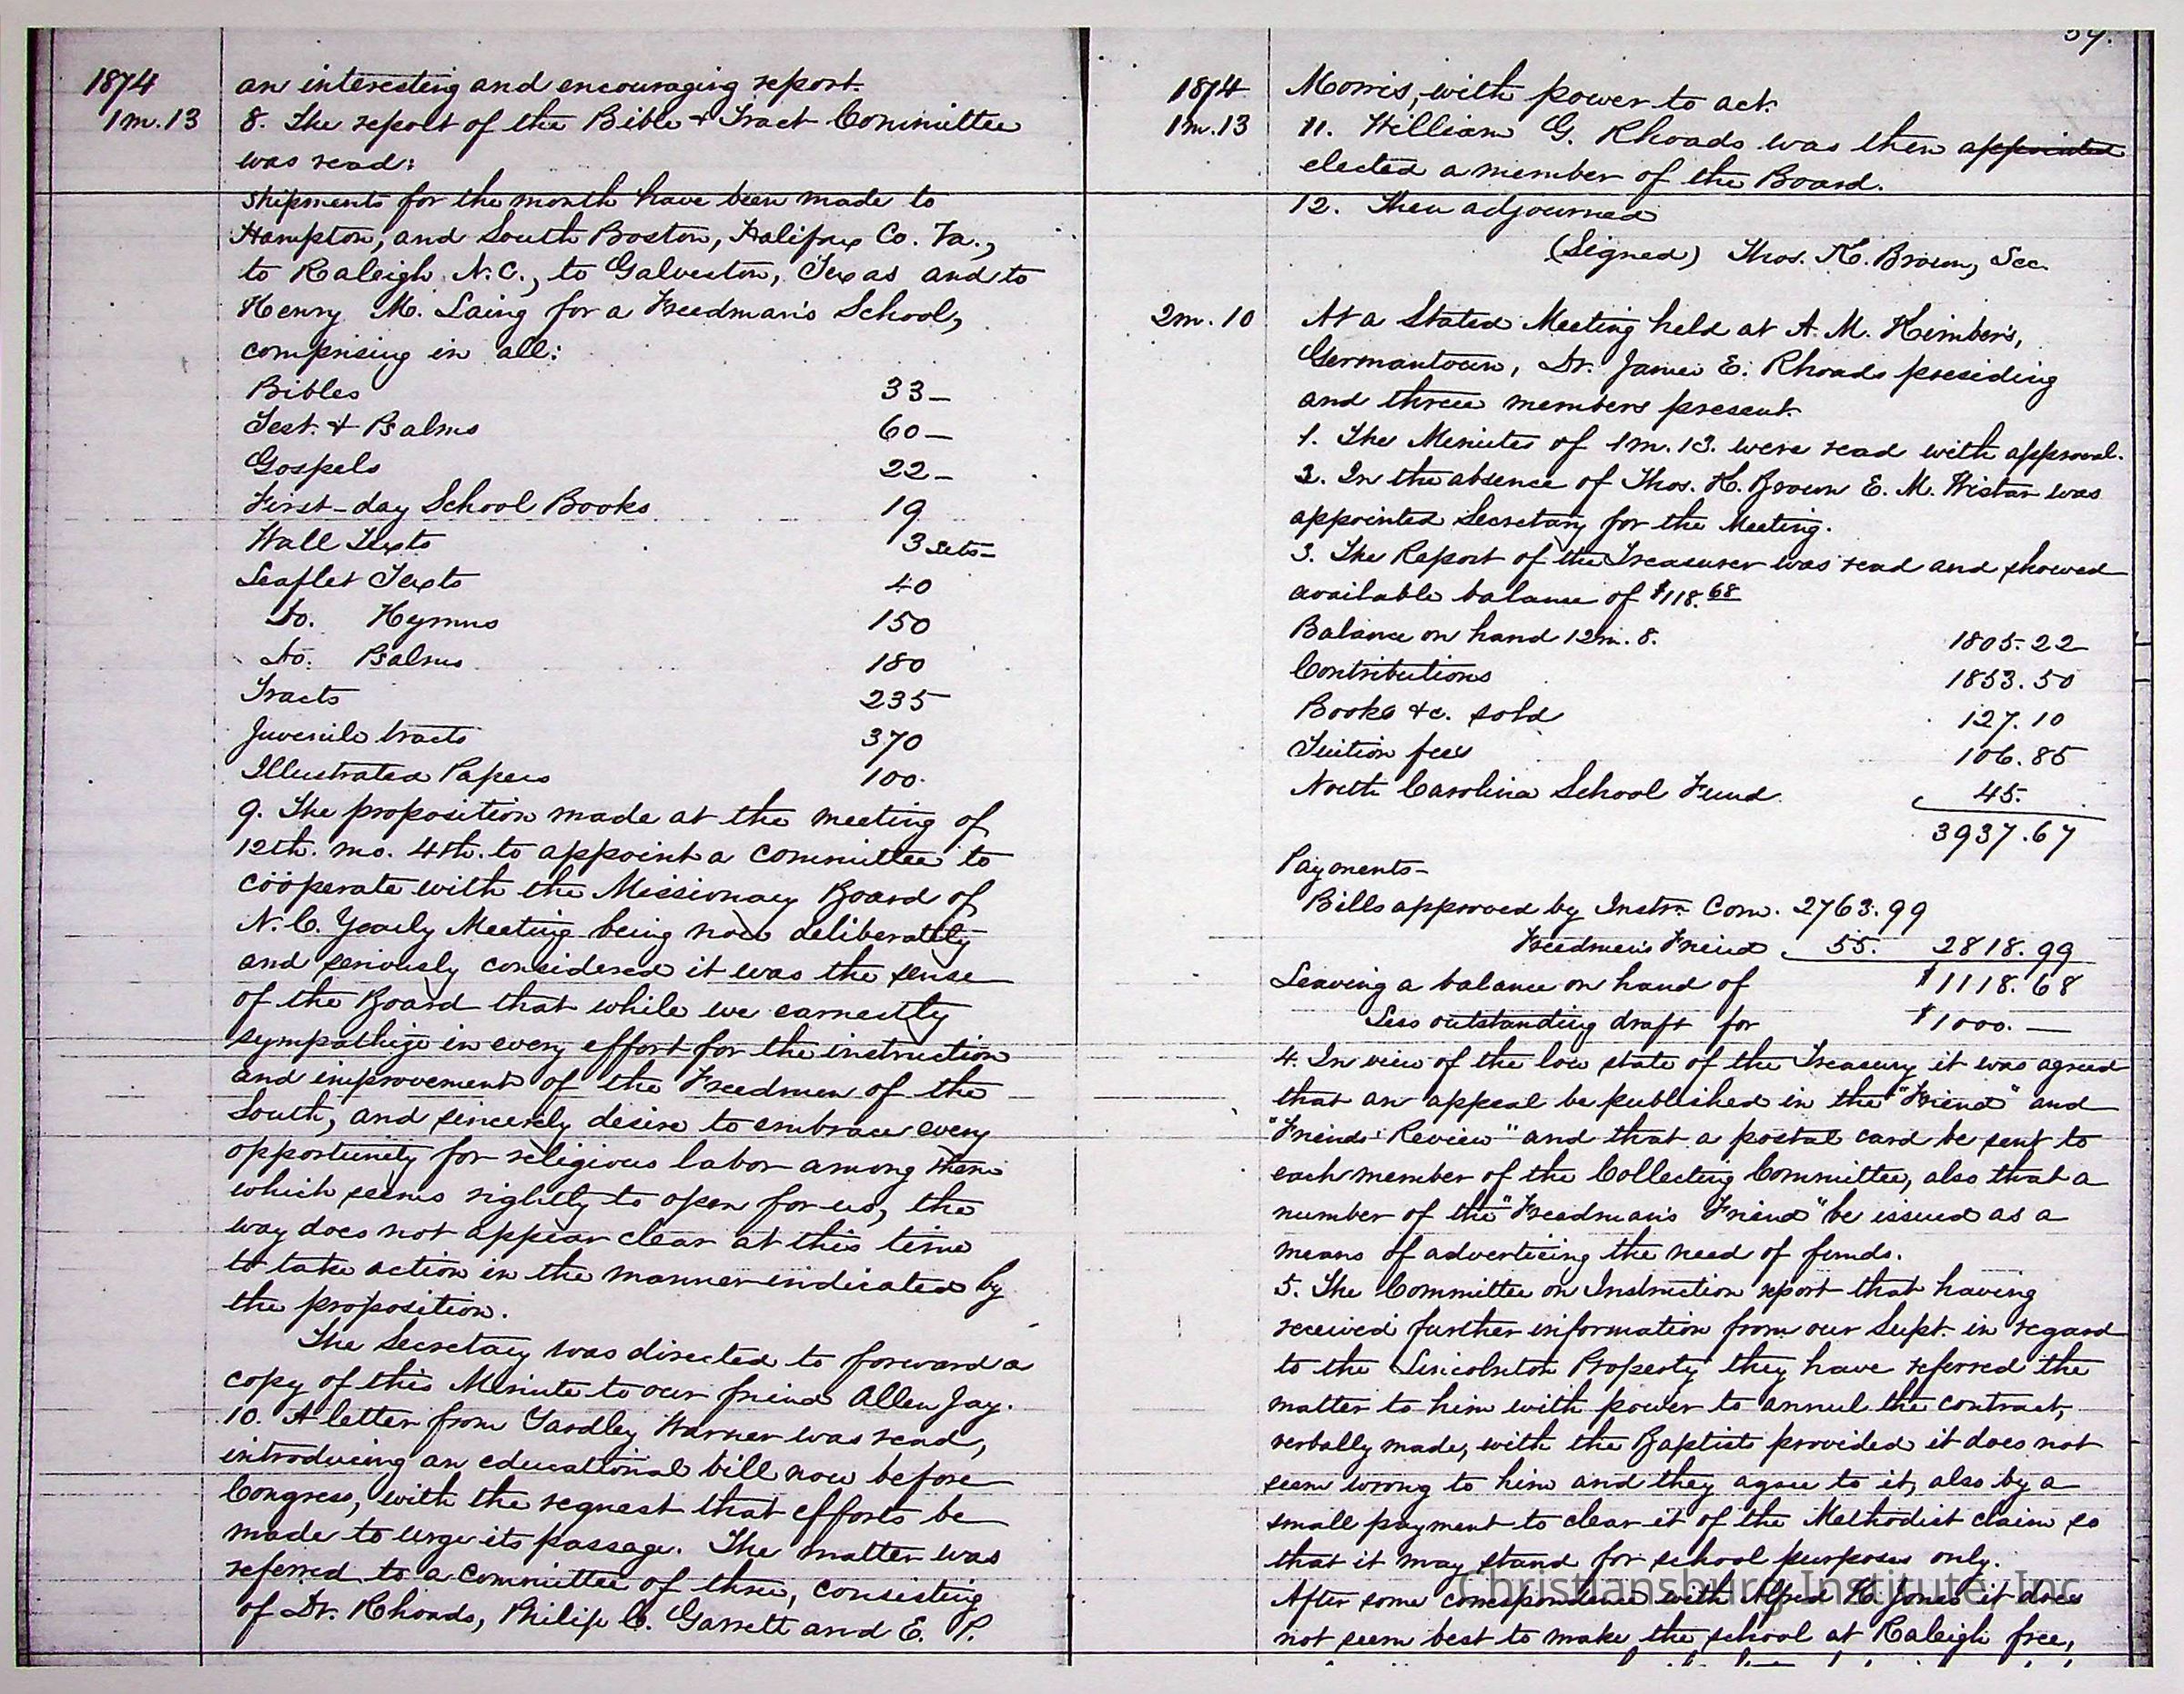 1874
1m.13
an interesting and encouraging report.
8. The report of the Bible & Tract Committee
was read:
Shipments for the month have been made to
Hampton, and South Boston, Halifax Co. Va.,
to Raleigh N.C., to Galveston, Texas and to
Henry M. Laing for a Freedman's School,
comprising in all:
Bibles 33—
Test. & Psalms 60—
Gospels 22—
First-day School Books 19
Wall Texts 3 sets—
Leaflet Texts 40
Do. Hymns 150
Do. Psalms 180
Tracts 235
Juvenile tracts 370
Illustrated Papers 100.
9. The proposition made at the meeting of
12th. mo. 4th. to appoint a committee to
coöperate with the Missionary Board of
N.C. Yearly Meeting being now deliberately
and seriously considered it was the sense
of the Board that while we earnestly
sympathize in every effort for the instruction
and improvement of the Freedmen of the
South, and sincerely desire to embrace every
opportunity for religious labor among them
which seems rightly to open for us, the
way does not appear clear at this time
to take action in the manner indicated by
the proposition.
The Secretary was directed to forward a
copy of this Minute to our friend Allen Jay.
10. A letter from Yardley Warner was read,
introducing an educational bill now before
Congress, with the request that efforts be
made to urge its passage. The matter was
referred to a committee of three, consisting
of Dr. Rhoads, Philip C. Garrett and E. P.
59.
1874
1m.13
Morris, with power to act.
11. William G. Rhoads was then appointed
elected a member of the Board.
12. Then adjourned
(Signed) Thos. K. Brown, Sec.
2m.10
At a Stated Meeting held at A. M. Kimber's,
Germantown, Dr. James E. Rhoads presiding
and three members present.
1. The Minutes of 1m.13. were read with approval.
2. In the absence of Thos. K. Brown E. M. Wistar was
appointed Secretary for the Meeting.
3. The Report of the Treasurer was read and showed
available balance of $118.68
Balance on hand 12m.8. 1805.22
Contributions 1853.50
Books &c. sold 127.10
Tuition fees 106.85
North Carolina School Fund 45.
3937.67
Payments—
Bills approved by Instr. Com. 2763.99
Freedmen's Friend 55. 2818.99
Leaving a balance on hand of $1118.68
Less outstanding draft for $1000.—
4. In view of the low state of the Treasury it was agreed
that an appeal be published in the "Friend" and
"Friends' Review" and that a postal card be sent to
each member of the Collecting Committee, also that a
number of the "Freedman's Friend" be issued as a
means of advertising the need of funds.
5. The Committee on Instruction report that having
received further information from our Supt. in regard
to the Lincolnton Property they have referred the
matter to him with power to annul the contract,
verbally made, with the Baptists provided it does not
seem wrong to him and they agree to it, also by a
small payment to clear it of the Methodist claim so
that it may stand for school purposes only.
After some correspondence with Alfred H. Jones it does
not seem best to make the school at Raleigh free,
Christiansburg Institute, Inc